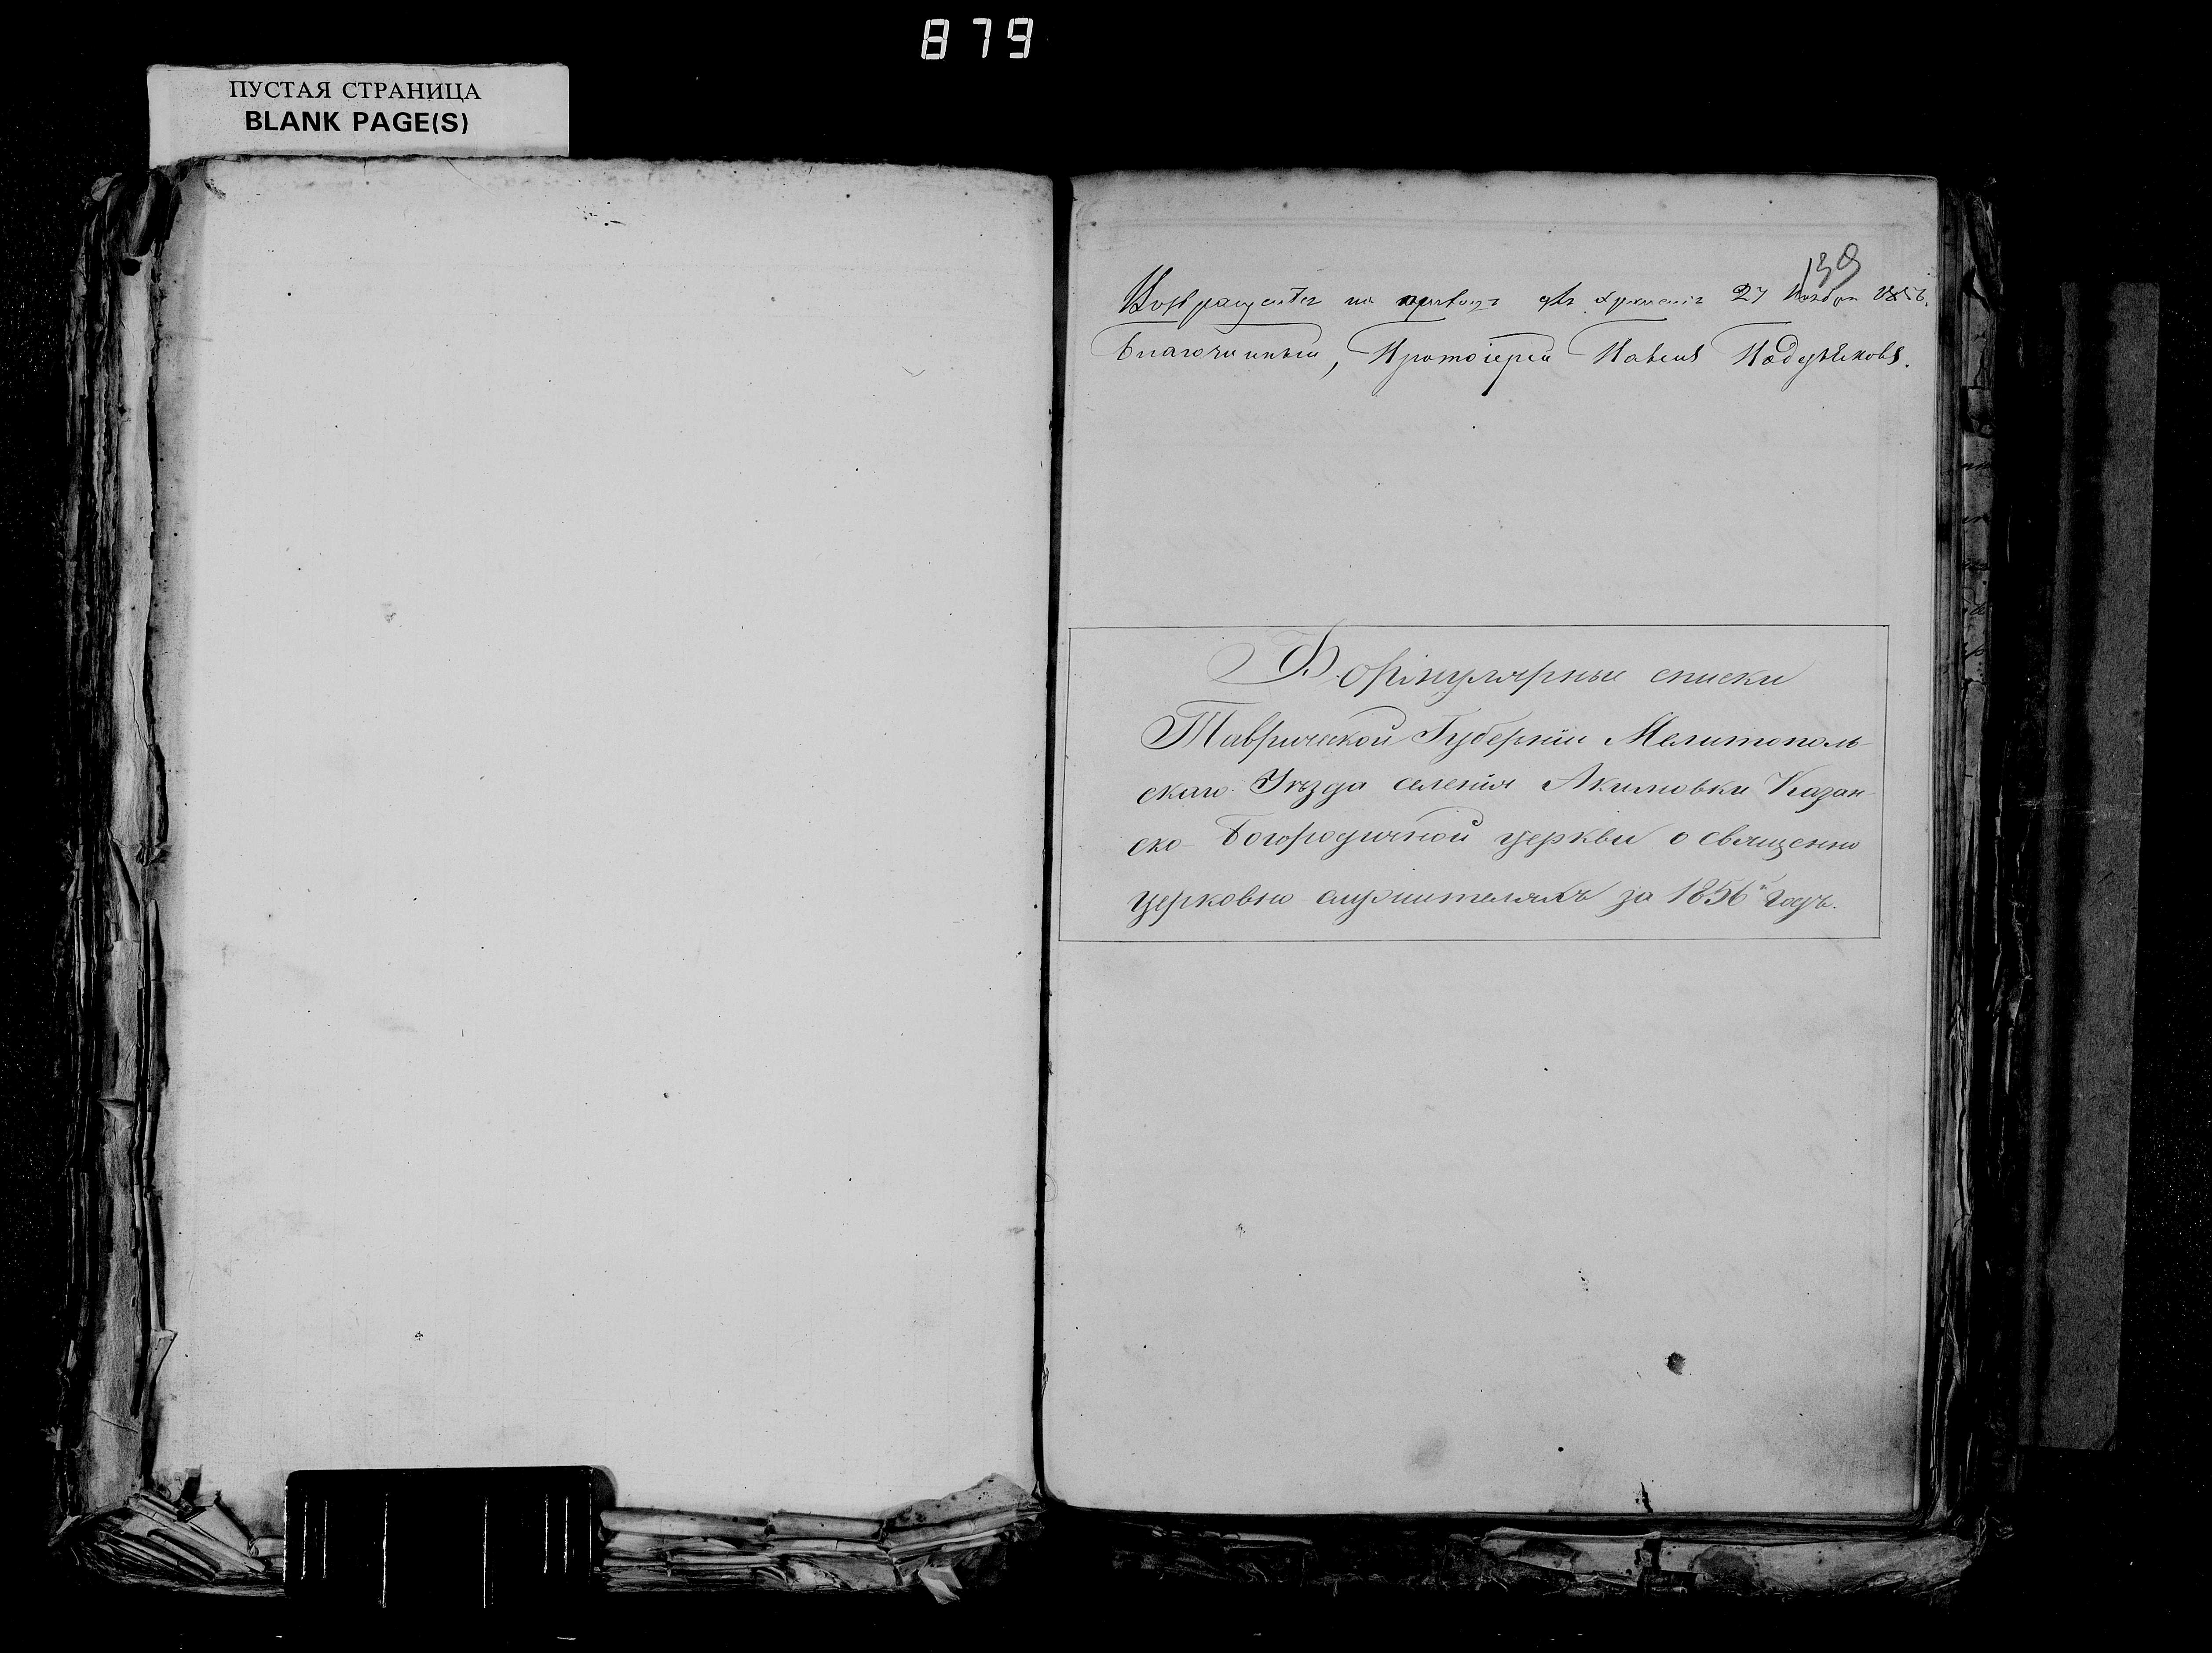 879
ПУСТАЯ СТРАНИЦА
BLANK PAGE(S)
139
Возвращается на приходъ для храненія 27 Ноября 1856.
Благочинный, Протоіерей Павелъ
Формулярные списки
Таврической Губерніи Мелитополь-
скаго Уѣзда селенія Акимовки Казан-
ско-Богородичной церкви о священно
церковно служителяхъ за 1856й годъ.